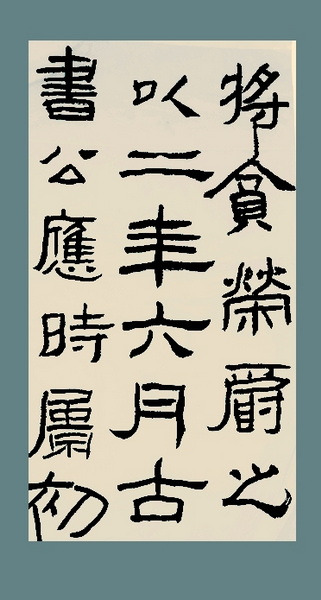 將貪榮爵之
以二年六月古
書公應時屬初